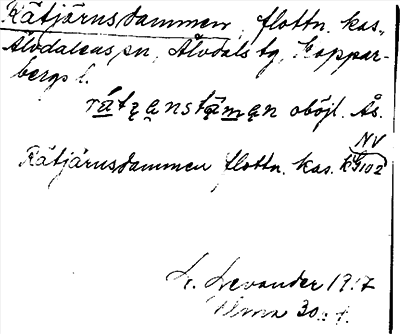 Råtjärnsdammen, flottn. kas.,
Älvdalens sn, Älvdals tg, Koppar-
bergs l.
rátʒanstäman oböjl. Ås.
NV
Råtjärnsdammen flottn. kas. kG102
L. Levander 1917